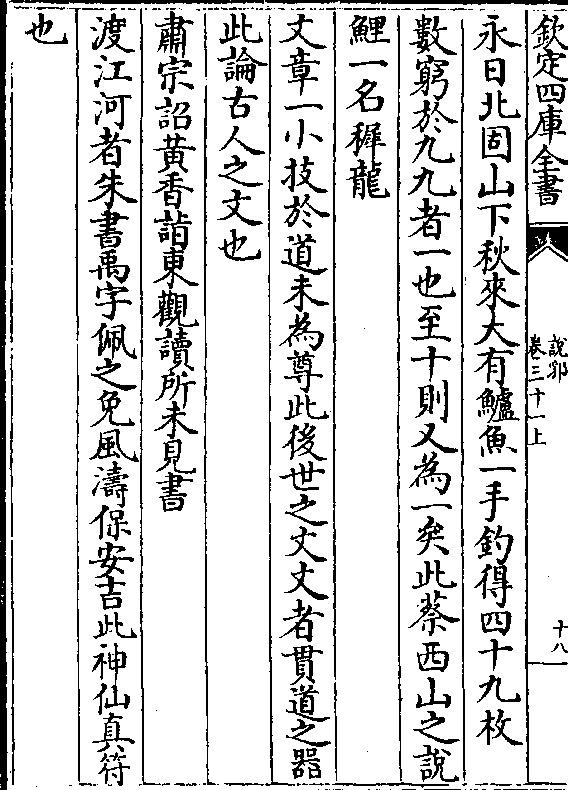 欽定四庫全書
說郛
卷三十一上
十八
永日北固山下秋來大有鱸魚一手釣得四十九枚
數窮於九九者一也至十則又為一矣此蔡西山之說
鯉一名稺龍
文章一小技於道未為尊此後世之文文者貫道之器
此論古人之文也
肅宗詔黃香詣東觀讀所未見書
渡江河者朱書禹字佩之免風濤保安吉此神仙真符
也